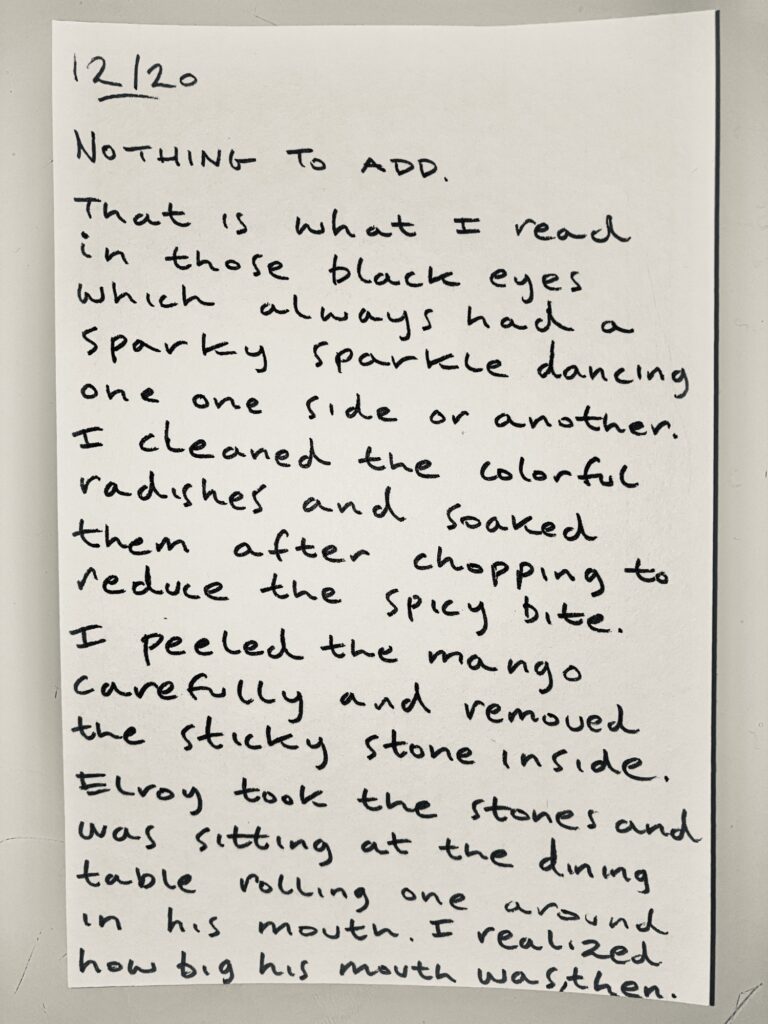 12/20
NOTHING TO ADD.
That is what I read
in those black eyes
which always had a
sparky sparkle dancing
one one side or another.
I cleaned the colorful
radishes and soaked
them after chopping to
reduce the spicy bite.
I peeled the mango
carefully and removed
the sticky stone inside.
Elroy took the stones and
was sitting at the dining
table rolling one around
in his mouth. I realized
how big his mouth was, then.